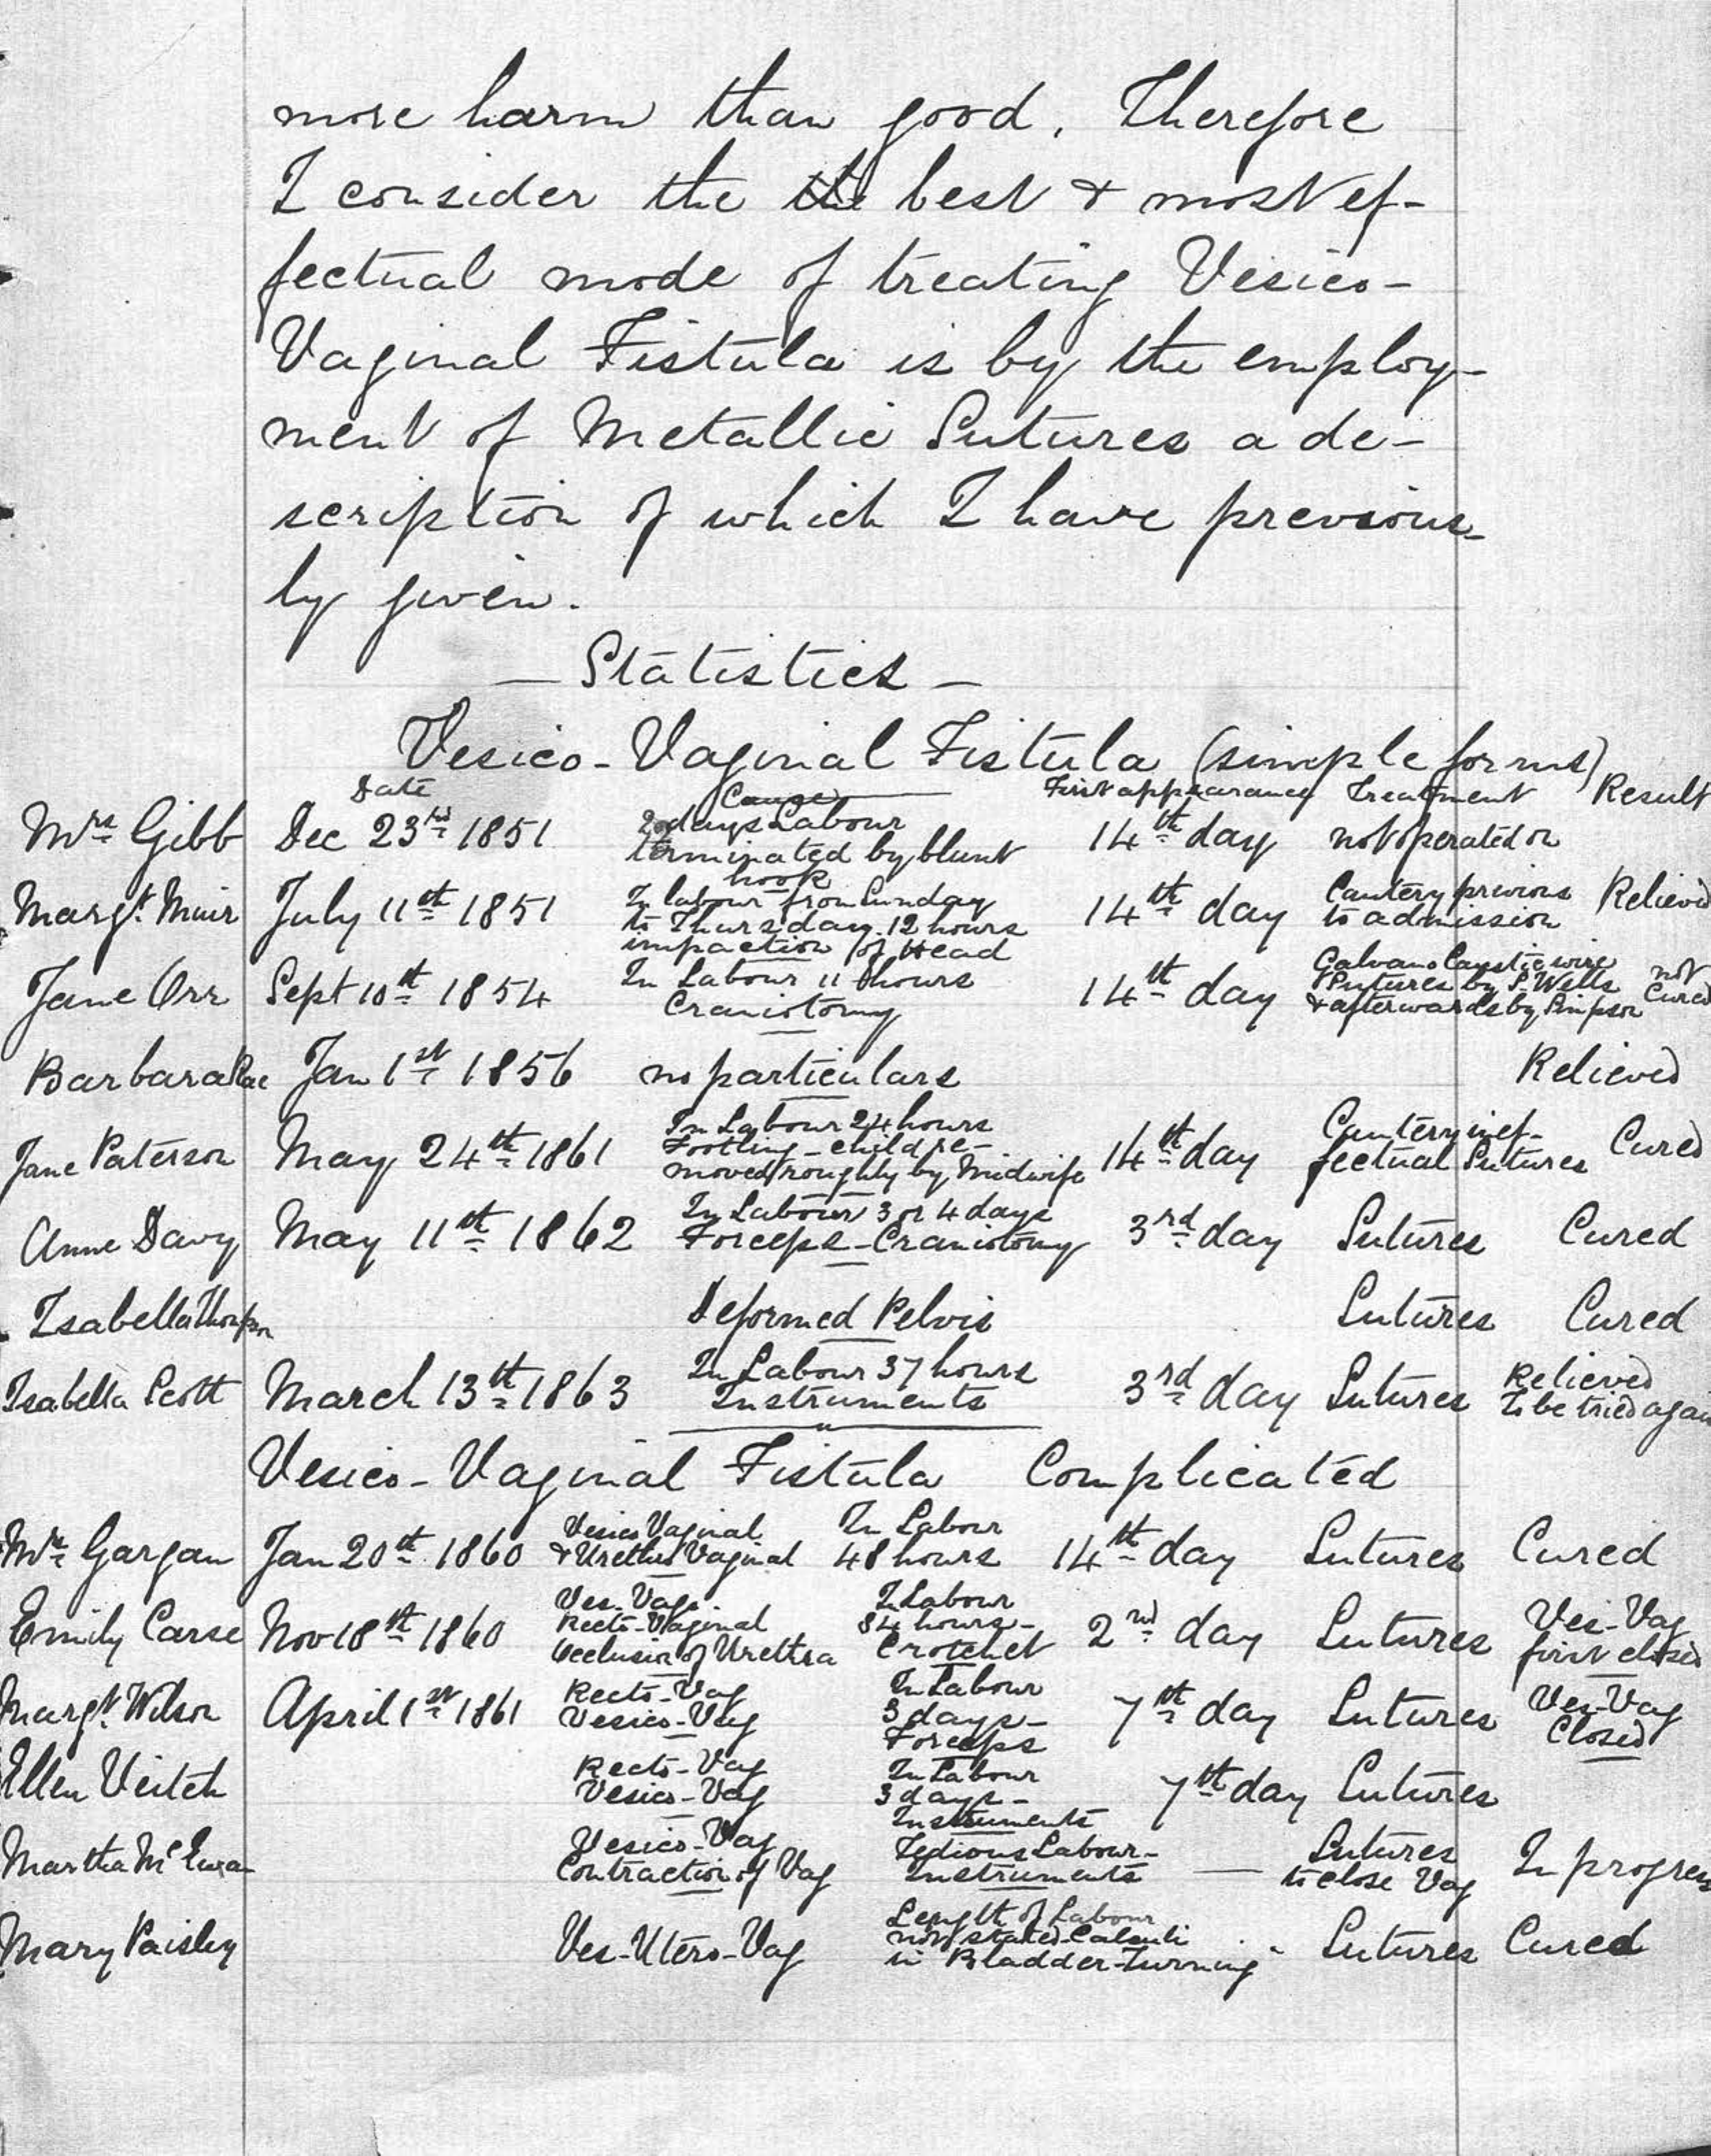 more harm than good. Therefore
I consider the the best & most ef-
fectual mode of treating Vesico-
Vaginal Fistula is by the employ-
ment of Metallic Sutures a de-
scription of which I have previous-
ly given.
— Statistics —
Vesico-Vaginal Fistula (simple forms)
Date Cause First appearance Treatment Result
Mrs Gibb Dec 23rd 1851 2 days Labour terminated by blunt hook 14th day not operated on
Margt. Muir July 11th 1851 In labour from Sunday to Thursday. 12 hours impaction of Head 14th day Cautery previous to admission Relieved
Jane Orr Sept 10th 1854 In Labour 11 hours Craniotomy 14th day Galvano Caustic wire Sutures by S. Wells & afterwards by Simpson not Cured
Barbara Rae Jan 1st 1856 no particulars Relieved
Jane Paterson May 24th 1861 In Labour 24 hours Footling - child re-moved roughly by Midwife 14th day Cautery inef-fectual Sutures Cured
Anne Davy May 11th 1862 In Labour 3 or 4 days Forceps - Craniotomy 3rd day Sutures Cured
Isabella Thompson Deformed Pelvis Sutures Cured
Isabella Scott March 13th 1863 In Labour 37 hours Instruments 3rd day Sutures Relieved To be tried again
Vesico-Vaginal Fistula Complicated
Mrs Gargan Jan 20th 1860 Vesico Vaginal & Urethro Vaginal In Labour 48 hours 14th day Sutures Cured
Emily Carse Nov 18th 1860 Ves-Vag. Recto-Vaginal Occlusion of Urethra In Labour 34 hours - Crotchet 2nd day Sutures Ves-Vag first closed
Margt. Wilson April 1st 1861 Recto-Vag Vesico-Vag In Labour 3 days - Forceps 7th day Sutures Ves-Vag Closed
Ellen Veitch Recto-Vag Vesico-Vag In Labour 3 days - Instruments 7th day Sutures
Martha McEwan Vesico-Vag Contraction of Vag Tedious Labour - Instruments — Sutures to close Vag In progress
Mary Paisley Ves-Utero-Vag Length of Labour not stated-Calculi in Bladder-Turning - Sutures Cured